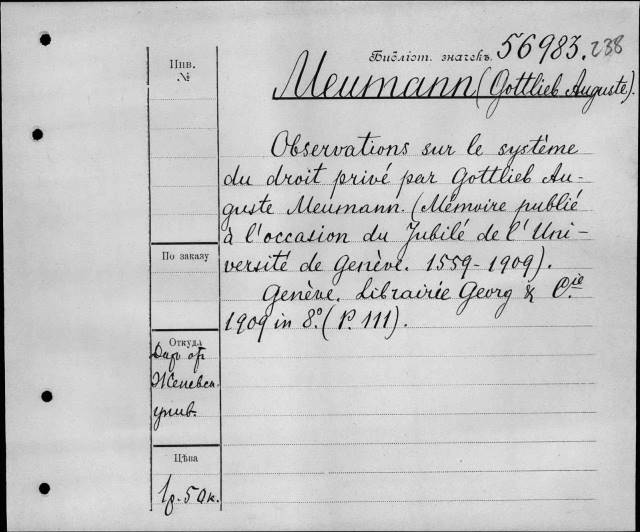 Библіот. значекъ 56983. 238
Инв.
№
Meumann (Gottlieb Auguste).
Observations sur le système
du droit privé par Gottlieb Au-
guste Meumann. (Mémoire publié
à l'occasion du Jubilé de l'Uni-
versité de Genève. 1559-1909).
Genève. Librairie Georg & C.ie
1909 in 8°. (P. 111).
По заказу
Откуда
Дар от
Женевск.
унив.
Цѣна
1р. 50к.